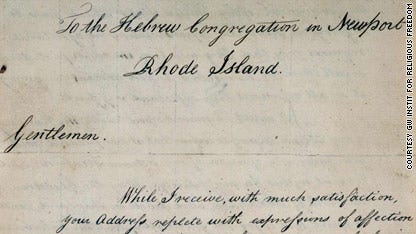 To the Hebrew Congregation in Newport
Rhode Island.
Gentlemen.
While I receive, with much satisfaction,
your Address replete with expressions of affection
COURTESY GW INSTIT FOR RELIGIOUS FREEDOM